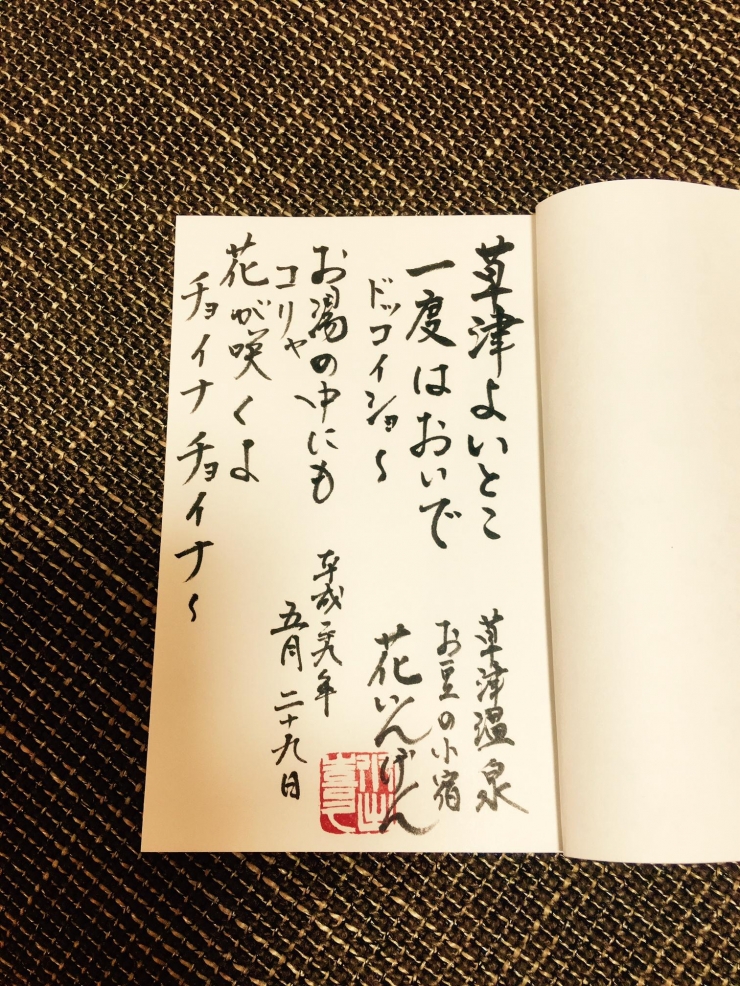 草津よいとこ
一度はおいで
ドッコイショ〜
お湯の中にも
コリャ
花が咲くよ
チョイナチョイナ〜
草津温泉
お豆の小宿
花いんげん
平成 年
五月二十九日